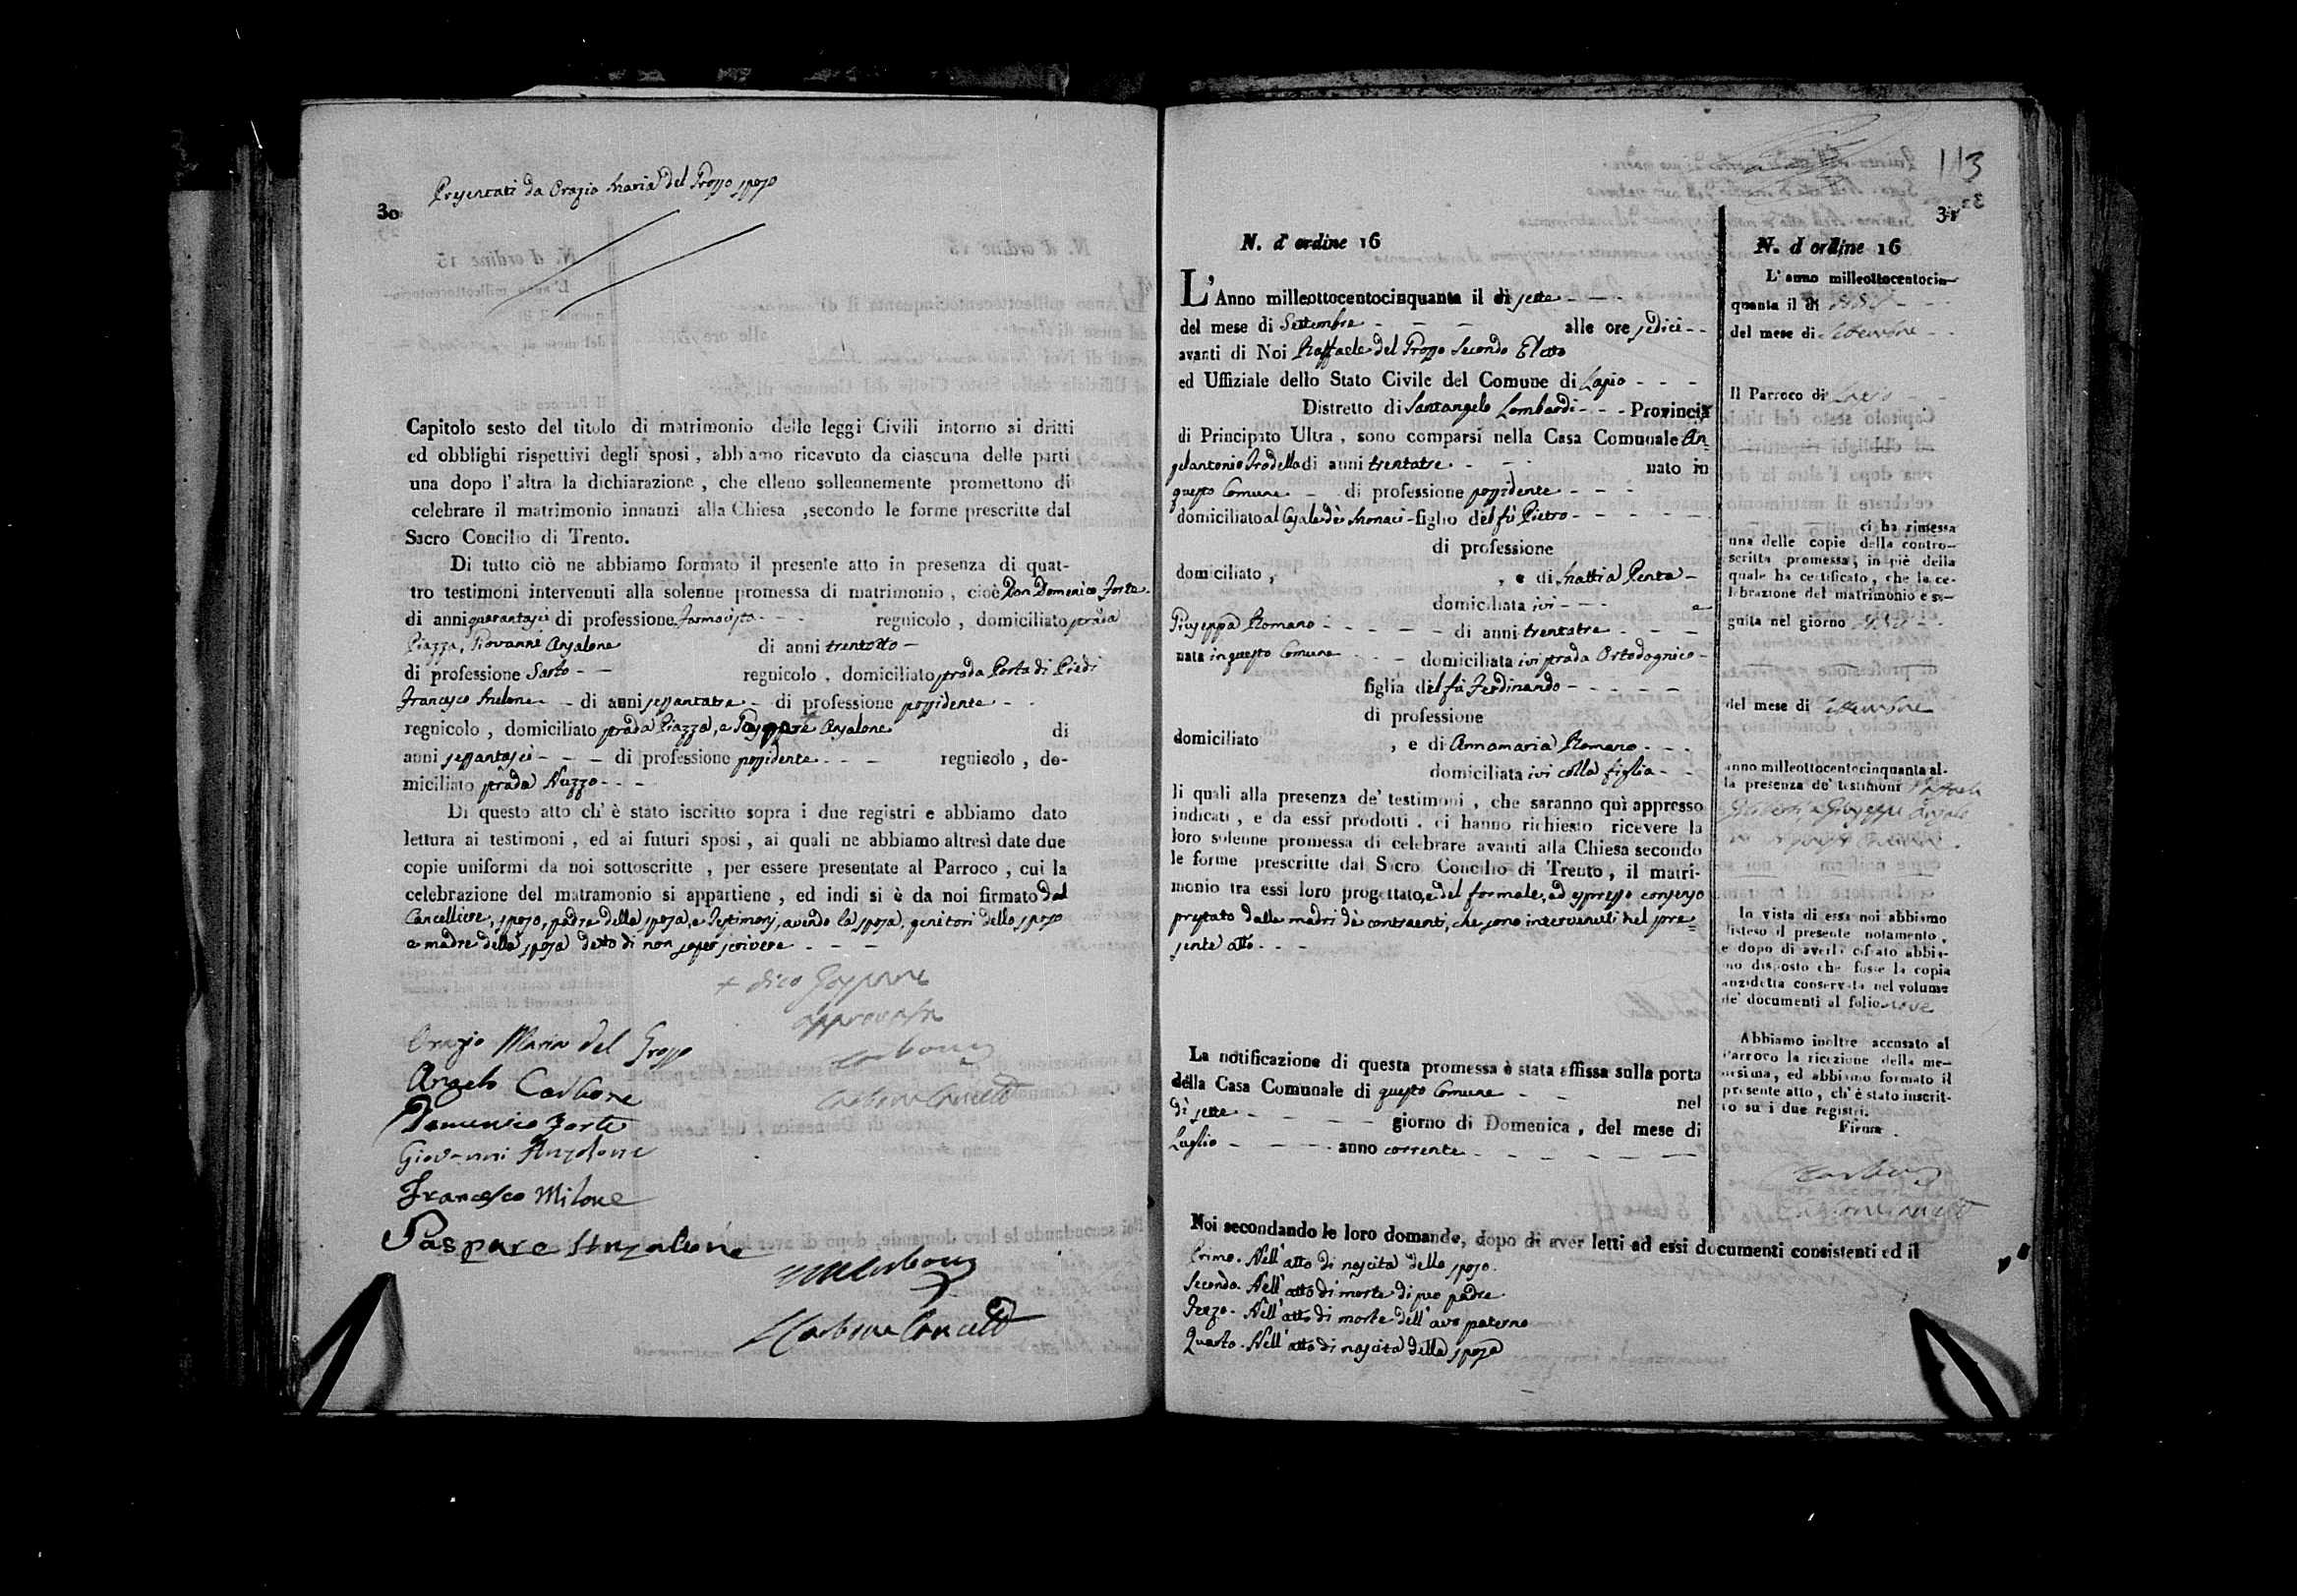 30
Presentati da Orazio Maria del Grosso sposo
Capitolo sesto del titolo di matrimonio delle leggi Civili intorno ai dritti
ed obblighi rispettivi degli sposi, abbiamo ricevuto da ciascuna delle parti
una dopo l'altra la dichiarazione, che elleno sollennemente promettono di
celebrare il matrimonio innanzi alla Chiesa, secondo le forme prescritte dal
Sacro Concilio di Trento.
Di tutto ciò ne abbiamo formato il presente atto in presenza di quat-
tro testimoni intervenuti alla solenne promessa di matrimonio, cioè Don Domenico Forte
di anni quarantasei di professione Farmacista - - regnicolo, domiciliato strada
Piazza, Giovanni Anzalone di anni trentotto -
di professione Sarto - - regnicolo, domiciliato strada Porta di Piedi
Francesco Milone - - di anni sessantatre - di professione possidente - -
regnicolo, domiciliato strada Piazza, e Gaspare Anzalone di
anni sessantasei - - - di professione possidente - - - regnicolo, do-
miciliato strada Nuzzo - - -
Di questo atto ch'è stato iscritto sopra i due registri e abbiamo dato
lettura ai testimoni, ed ai futuri sposi, ai quali ne abbiamo altresì date due
copie uniformi da noi sottoscritte, per essere presentate al Parroco, cui la
celebrazione del matramonio si appartiene, ed indi si è da noi firmato dal
Cancelliere, sposo, padre della sposa, e Testimonj, avendo la sposa, genitori dello sposo
e madre della sposa detto di non saper scrivere - - -
+ dico Gaspare
approvasi
Carbone
Carbone Cancell
Orazio Maria del Grosso
Angelo Carbone
Domenico Forte
Giovanni Anzalone
Francesco Milone
Gaspare Anzalone
Carbone
Carbone Cancell
113
31
N. d'ordine 16
L'Anno milleottocentocinquanta il dì sette - - -
del mese di Settembre - - - alle ore sedici - -
avanti di Noi Raffaele del Grosso Secondo Eletto
ed Uffiziale dello Stato Civile del Comune di Lapio - - -
Distretto di Santangelo Lombardi - - - Provincia
di Principato Ultra, sono comparsi nella Casa Comunale An-
gelantonio Trodella di anni trentatre - - nato in
questo Comune - di professione possidente - - -
domiciliato al Casale dè Monaci - figlio del fù Pietro - - - - -
di professione
domiciliato, , e di Mattia Penta -
domiciliata ivi - - - e
Giuseppa Romano - - - - - di anni trentatre - - -
nata in questo Comune - - - domiciliata ivi strada Ortodognico -
figlia del fù Ferdinando - - - - -
di professione
domiciliato , e di Annamaria Romano - - -
domiciliata ivi colla figlia - -
li quali alla presenza de' testimoni, che saranno quì appresso
indicati, e da essi prodotti, ci hanno richiesto ricevere la
loro solenne promessa di celebrare avanti alla Chiesa secondo
le forme prescritte dal Sacro Concilio di Trento, il matri-
monio tra essi loro progettato, e del formale, ed espresso consenso
prestato dalle madri dè contraenti, che sono intervenuti nel pre-
sente atto - - -
La notificazione di questa promessa è stata affissa sulla porta
della Casa Comunale di questo Comune - - nel
dì sette - - - - giorno di Domenica, del mese di
Luglio - - - - anno corrente - - - - - -
Noi secondando le loro domande, dopo di aver letti ad essi documenti consistenti ed il
Primo. Nell'atto di nascita dello sposo.
Secondo. Nell'atto di morte di suo padre.
Terzo. Nell'atto di morte dell'avo paterno
Quarto. Nell'atto di nascita della sposa
N. d'ordine 16
L'anno milleottocentocin-
quanta il dì
del mese di Settembre - -
Il Parroco di Lapio
ci ha rimessa
una delle copie della contro-
scritta promessa, in piè della
quale ha certificato, che la ce-
lebrazione del matrimonio è se-
guita nel giorno
del mese di Settembre
anno milleottocentocinquanta al-
la presenza de' testimoni
e Giuseppe
In vista di essa noi abbiamo
disteso il presente notamento,
e dopo di averla cifrato abbia-
mo disposto che fosse la copia
anzidetta conservata nel volume
de' documenti al folio nove
Abbiamo inoltre accusato al
Parroco la ricezione della me-
desima, ed abbiamo formato il
presente atto, ch'è stato inscrit-
to su i due registri.
Firma
Carbone